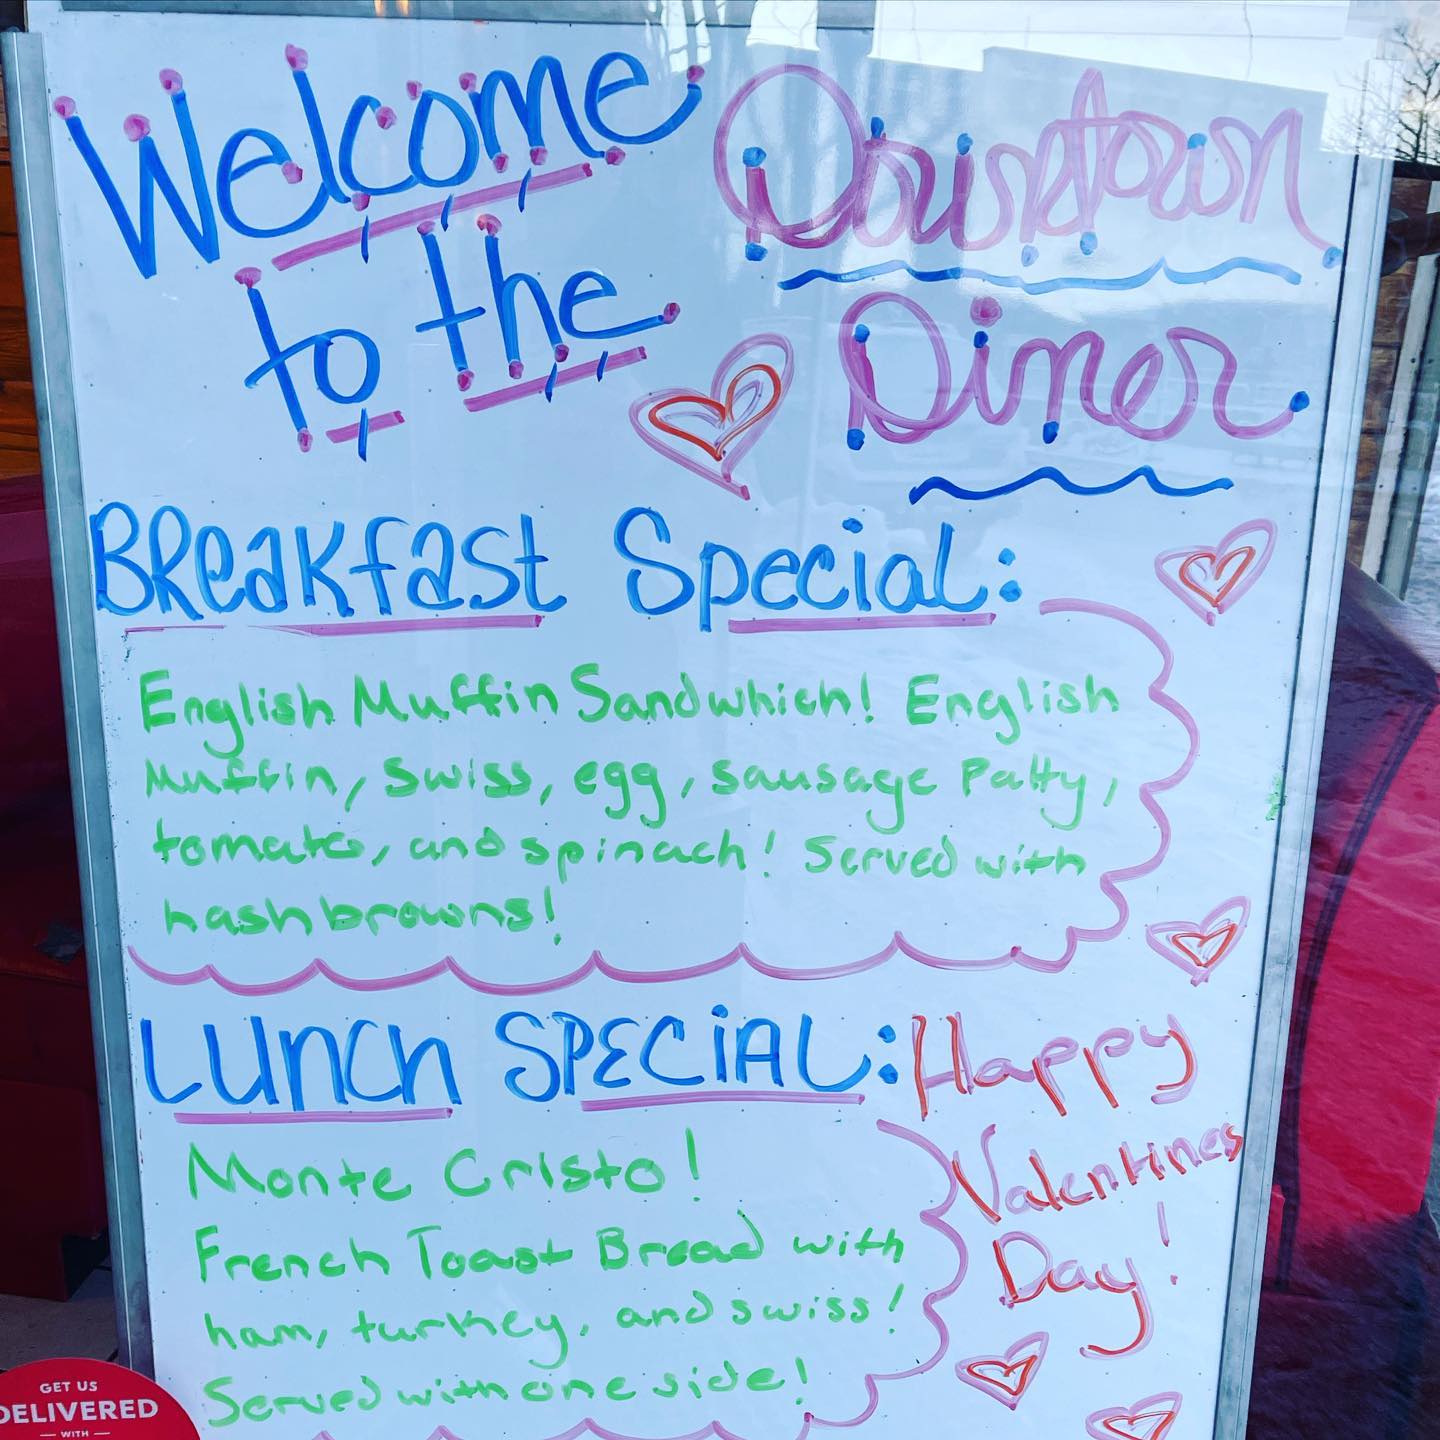 Welcome
to the
Downtown
Diner
Breakfast Special:
English Muffin Sandwhich! English
Muffin, Swiss, egg, sausage Patty,
tomato, and spinach! Served with
hashbrowns!
LUnch SPECIAL:
Monte Cristo!
French Toast Bread with
ham, turkey, and swiss!
Served with one side!
Happy
Valentines
Day!
GET US
DELIVERED
— WITH —